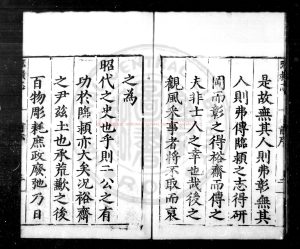 是故無其人則弗彰無其
人則弗傳臨頴之志得硏
岡而彰之得裕齋而傳之
夫非士人之幸也哉後之
觀風采事者將不取而裒
之為
昭代之史也乎則二公之有
功於臨頴亦大矣况裕齋
之尹兹土也承荒歉之後
百物彫耗庶政廢弛乃日